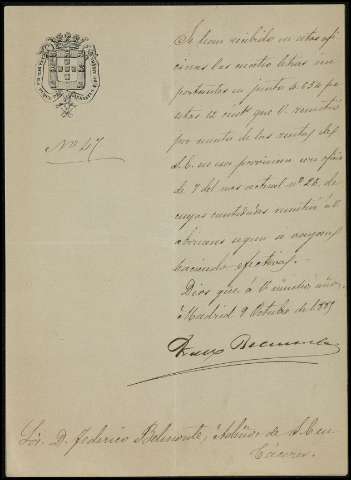 Nº 47
Se han recibido en estas ofi
cinas las cuatro letras im
portantes en junto de 654 pe
setas 12 cént que V. remitió
por cuenta de las rentas de
S.E. en esa provincia con oficio
de 7 del mes actual nº 28, de
cuyas cantidades remitirá á V.
segun se vayan
haciendo efectivas.
Dios gue á V. muchos años.
Madrid 9 Octubre de 1889
Belmonte
Sor. D. Federico Belmonte, Admor de S.E. en
Cáceres.